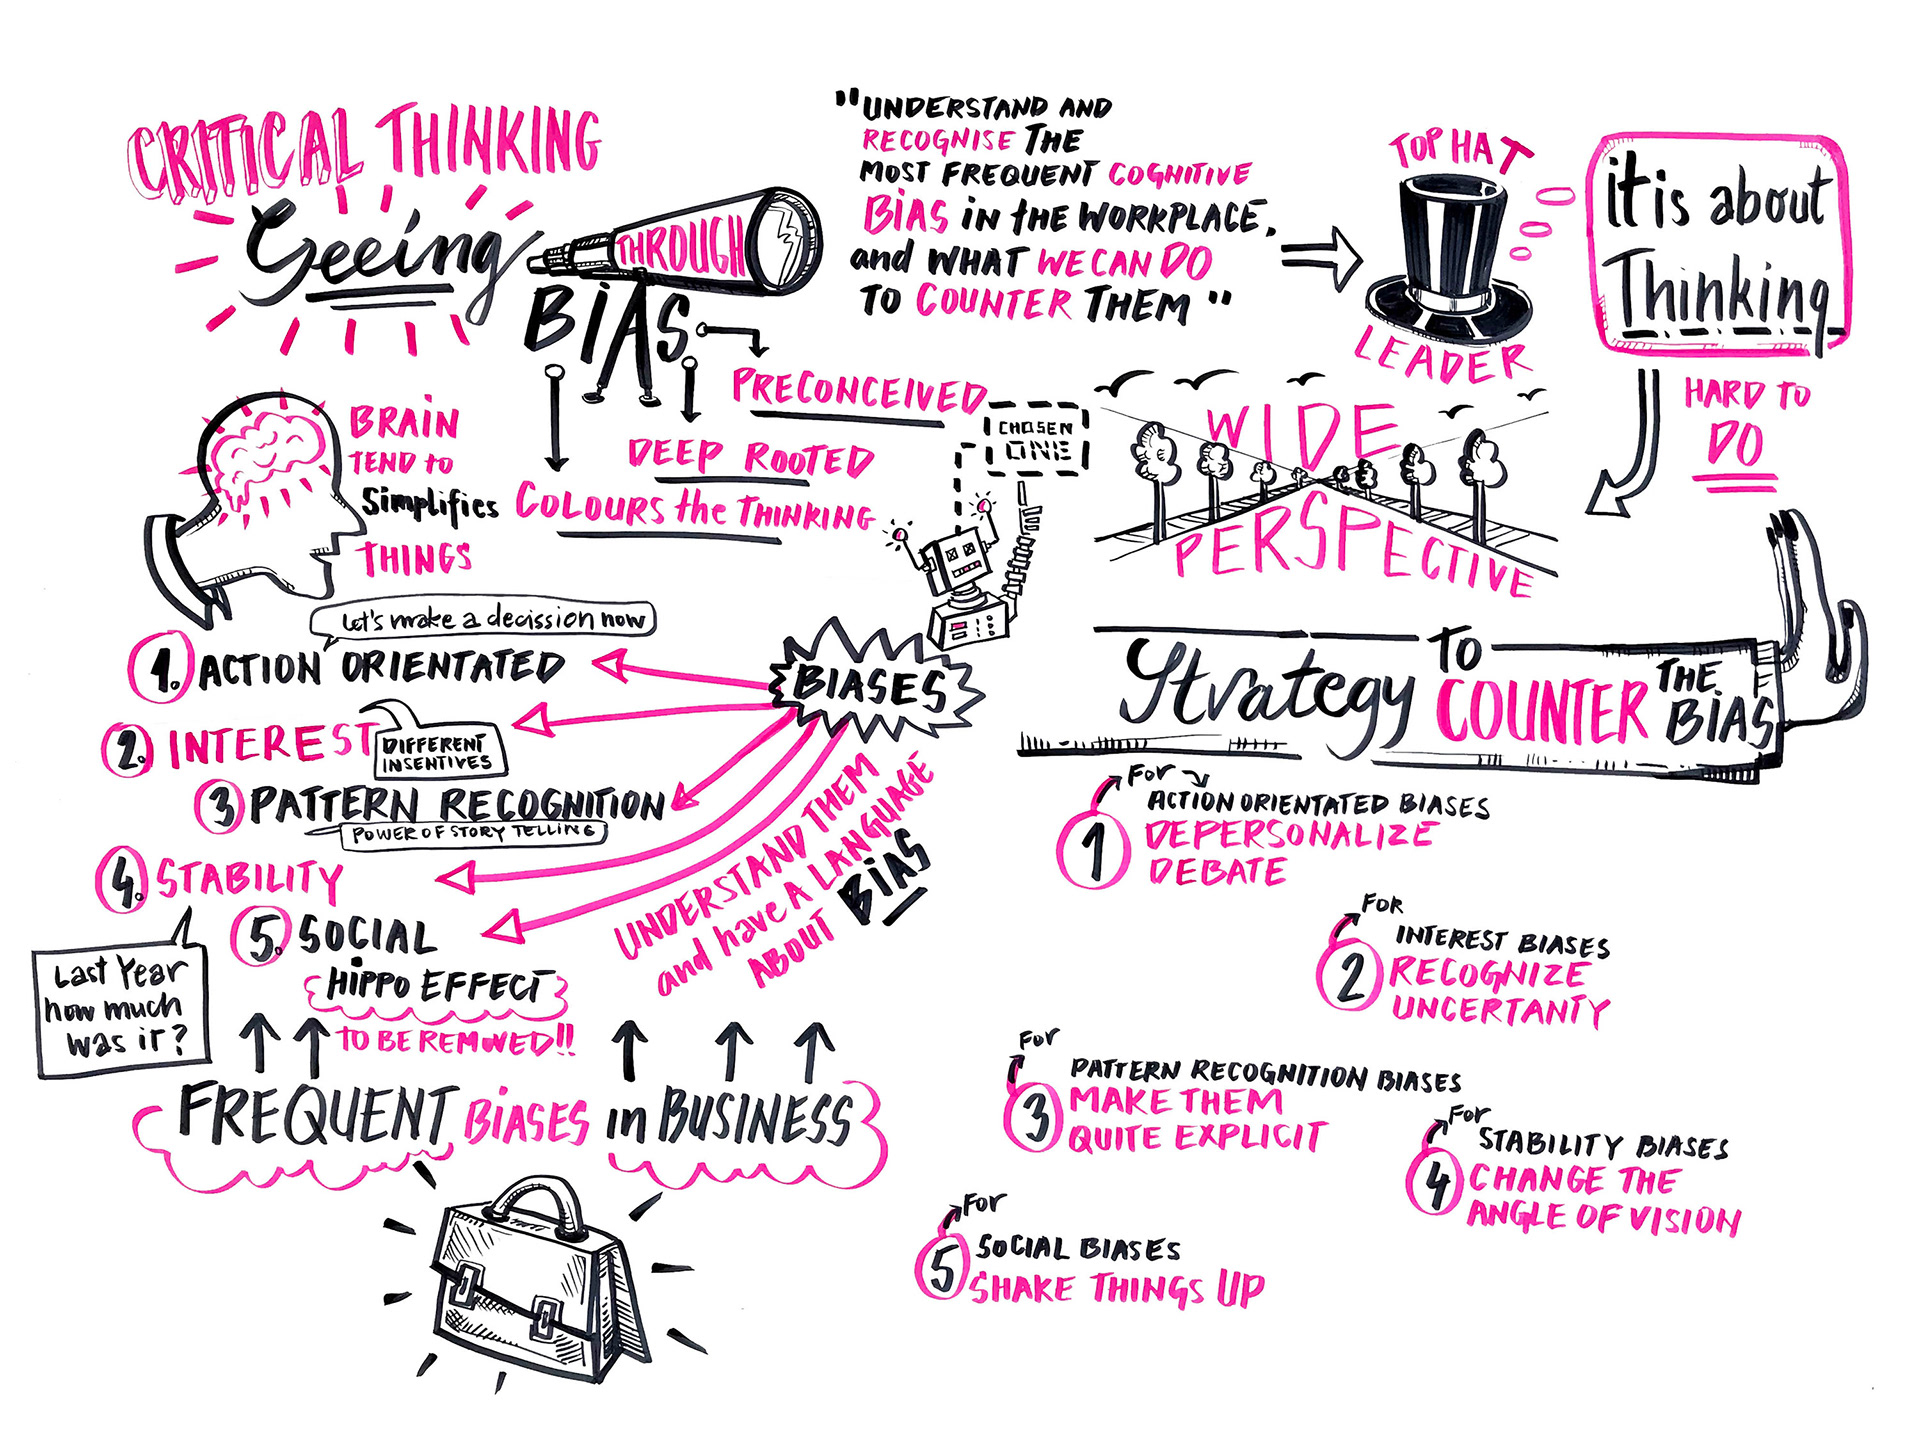 CRITICAL THINKING
Seeing
THROUGH
BIAS
PRECONCEIVED
DEEP ROOTED
COLOURS the THINKING
"UNDERSTAND AND
RECOGNISE THE
MOST FREQUENT COGNITIVE
BIAS iN tHE WORKPLACE,
and WHAT WE CAN DO
TO COUNTER THEM"
TOP HAT
LEADER
it is about
Thinking
HARD TO
DO
BRAIN
TEND to
Simplifies
THINGS
CHOSEN
ONE
WIDE
PERSPECTIVE
BIASES
Let's make a decission now
1. ACTION ORIENTATED
2. INTEREST
DIFFERENT
INSENTIVES
3 PATTERN RECOGNITION
POWER OF STORY TELLING
4. STABILITY
Last Year
how much
was it?
5. SOCIAL
HiPPO EFFECT
TO BE REMOVED!!
UNDERSTAND THEM
and have A LANGUAGE
ABOUT BiAS
FREQUENT BiASES in BUSINESS
Strategy TO COUNTER THE BIAS
For
1 ACTION ORIENTATED BIASES
DEPERSONALIZE
DEBATE
FOR
2 INTEREST BIASES
RECOGNIZE
UNCERTANTY
For
3 PATTERN RECOGNITION BIASES
MAKE THEM
QUITE EXPLICIT
For
4 STABILITY BIASES
CHANGE THE
ANGLE OF VISION
For
5 SOCIAL BIASES
SHAKE THINGS UP